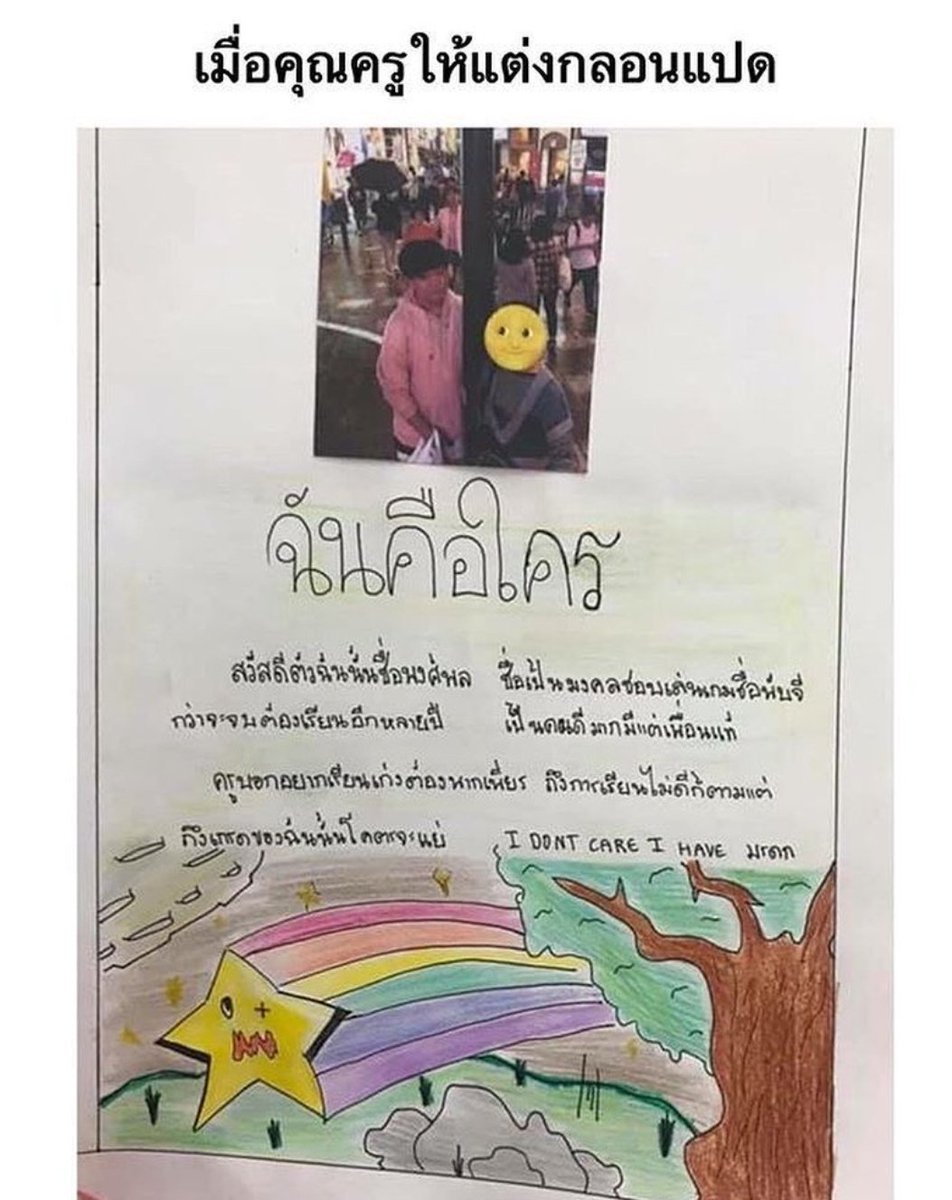 เมื่อคุณครูให้แต่งกลอนแปด
ฉันคือใคร
สวัสดีตัวฉันนั้นชื่อพงศ์พล ชื่อเป็นมงคลชอบเล่นเกมชื่อพับจี
กว่าจะจบต้องเรียนอีกหลายปี เป็นคนดีมากมีแต่เพื่อนแท้
ครูบอกอยากเรียนเก่งต้องพากเพียร ถึงการเรียนไม่ดีก็ตามแต่
ถึงเกรดของฉันนั้นโคตรจะแย่ I DONT CARE I HAVE มรดก